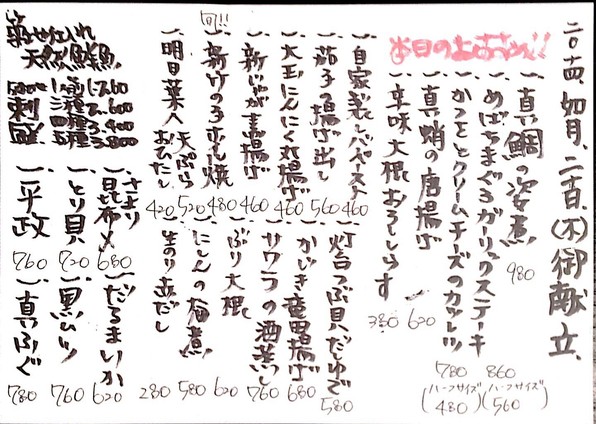 二〇一四、如月、二十日、(木)御献立、
本日の上おすすめ!!
一、真鯛の姿煮 980
一、めばちまぐろガーリックステーキ 860 (ハーフサイズ 560)
一、かつをとクリームチーズのカツレツ 780 (ハーフサイズ 480)
一、真蛸の唐揚げ 620
一、辛味大根おろししらす 380
一、自家製レバペースト 460
一、茄子の揚げ出し 560
一、大玉にんにく丸揚げ 460
一、新じゃが素揚げ 460
旬!!
一、新竹の子ホイル焼 480
一、明日葉 天ぷら 520
おひたし 420
一、灯台つぶ貝だしゆで 580
一、かじき竜田揚げ 680
一、サワラの酒蒸し 760
一、ぶり大根 620
一、にしんの梅煮 580
一、生のり赤だし 280
築地仕入れ
天然鮮魚
刺盛
一人前 1,760
三種 2,600
四種 3,400
五種 3,800
一、さより昆布〆 680
一、とり貝 720
一、平政 760
一、だるまいか 620
一、黒ムツ 760
一、真ふぐ 780